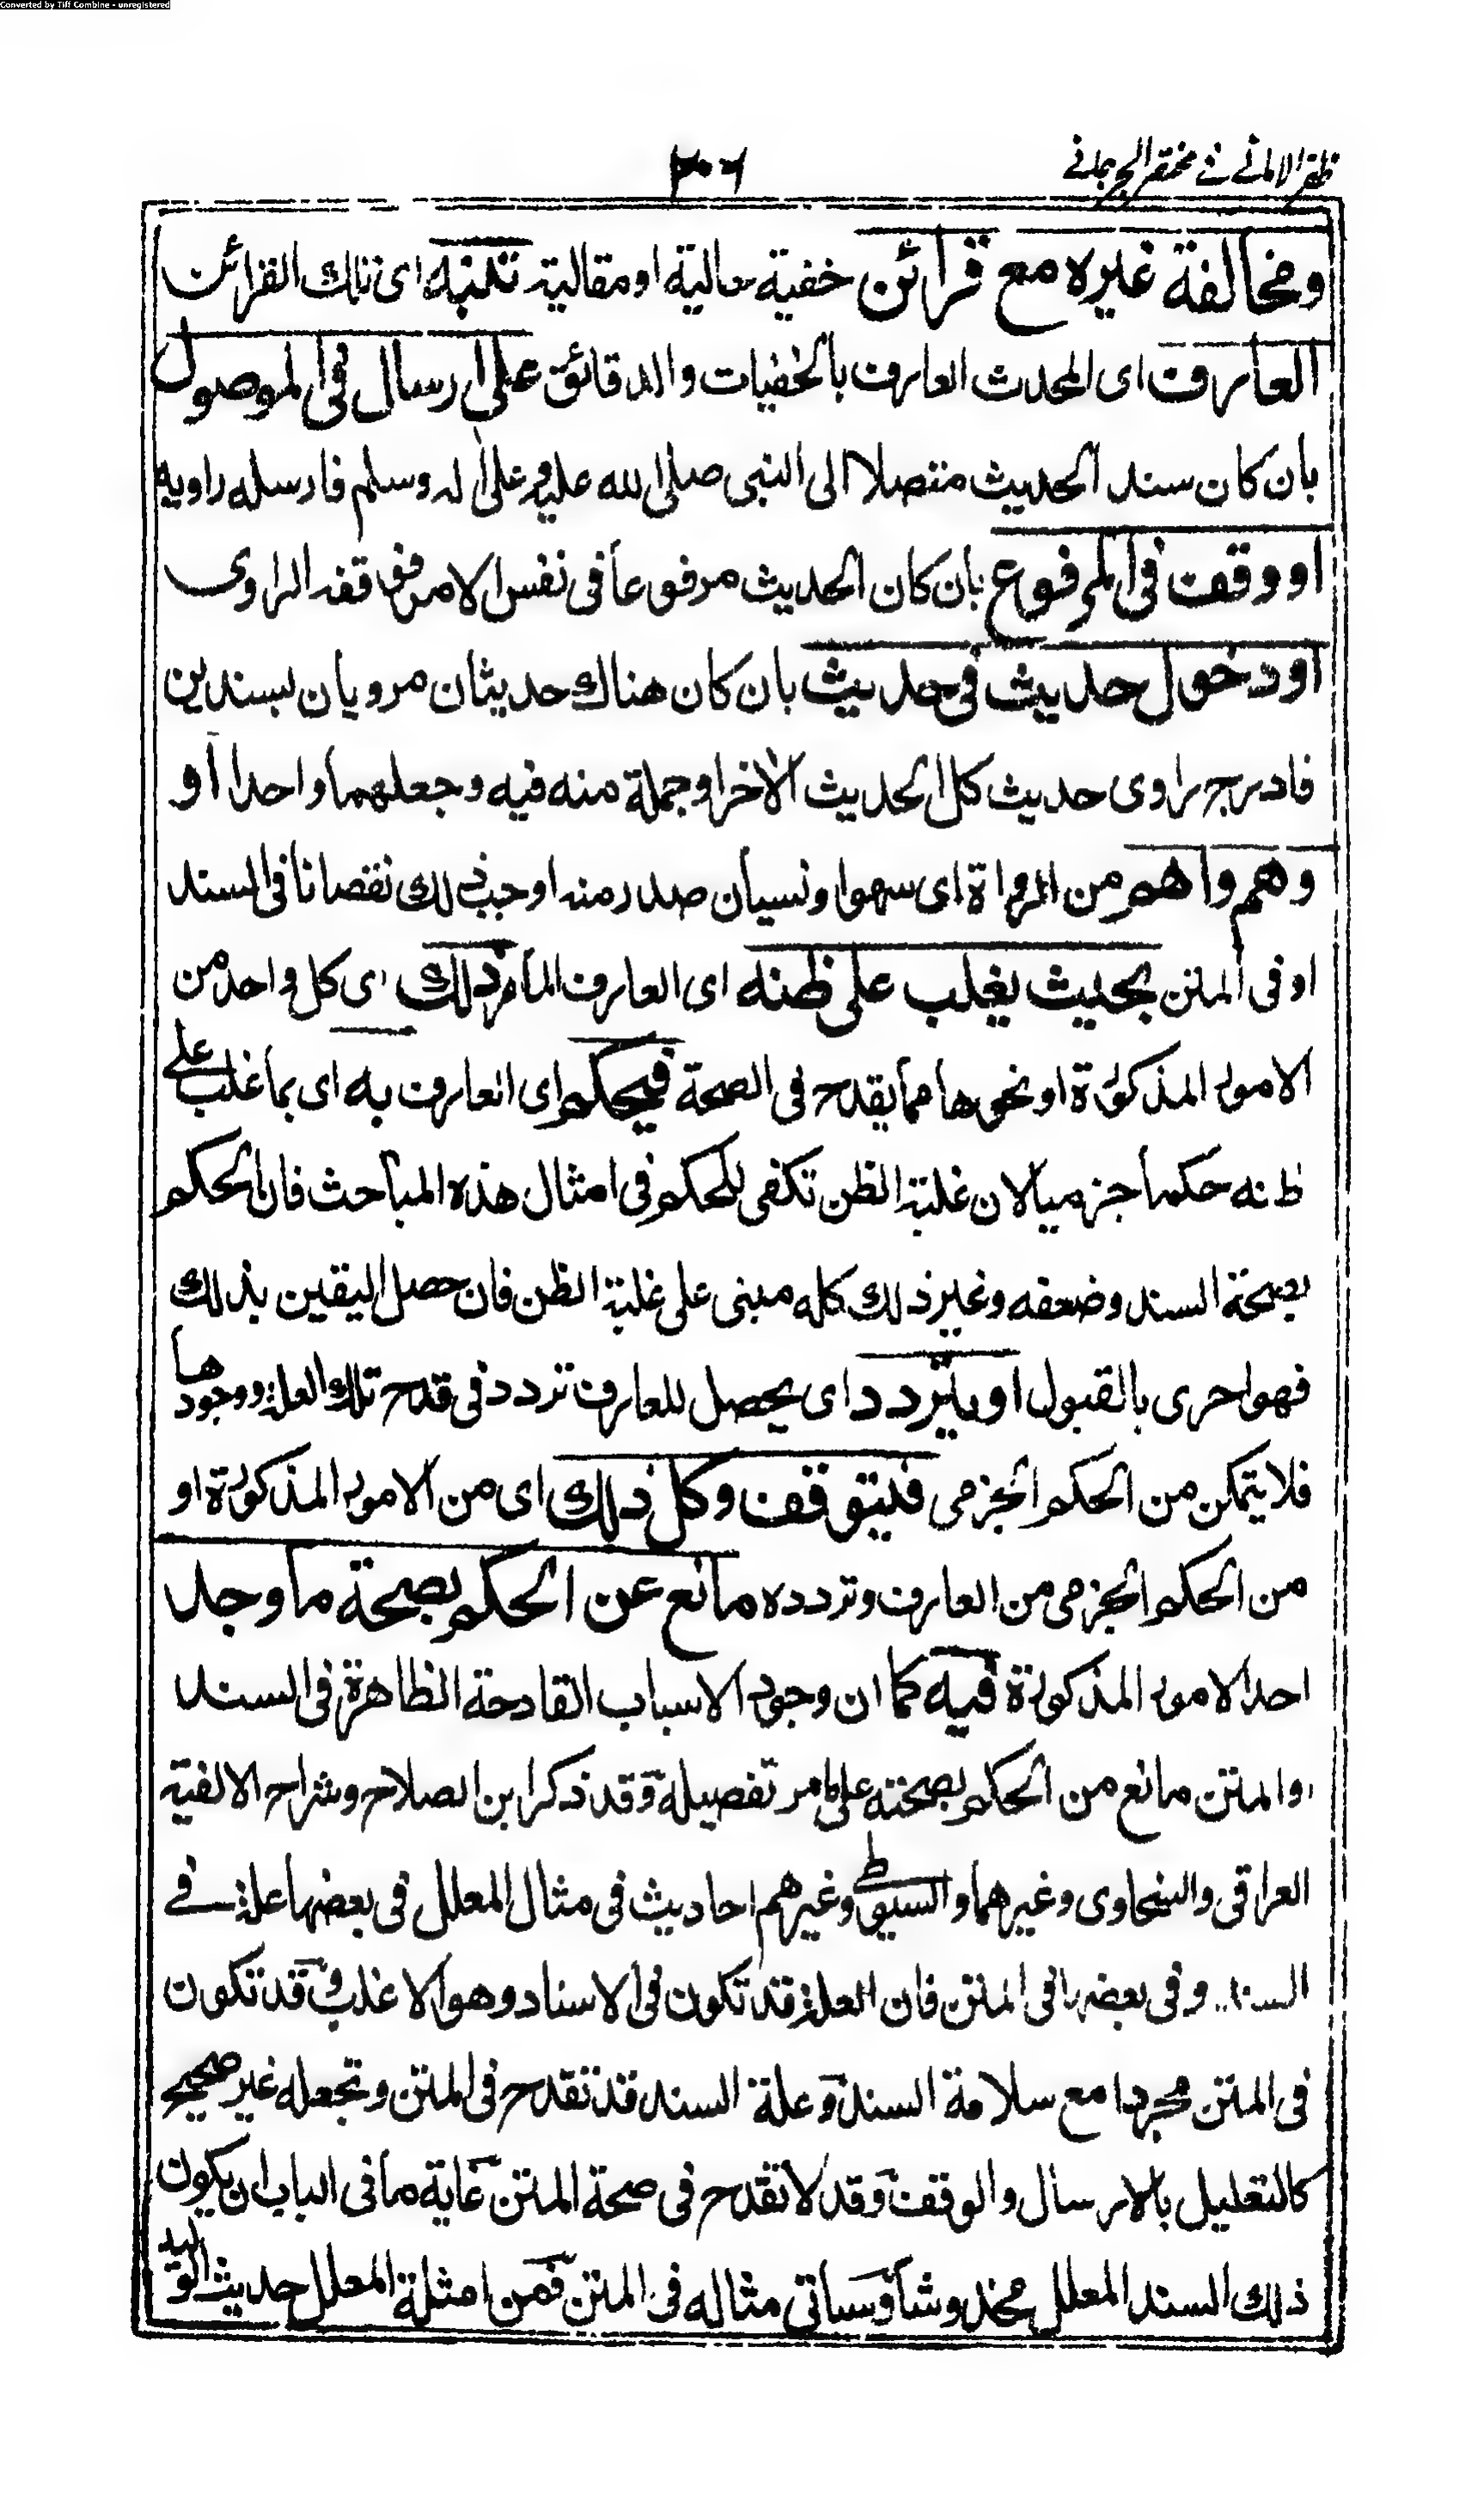 Converted by Tiff Combine - unregistered
ظفر الامانى فى مختصر الجرجانى
٢٠٦
ومخالفة غيره مع قرائن خفية حالية او مقالية تنبه اى تلك القرائن
العارف اى المحدث العارف بالخفيات والدقائق على ارسال فى الموصول
بان كان سند الحديث متصلا الى النبى صلى الله عليه وعلى اله وسلم فارسله راويه
او وقف فى المرفوع بان كان الحديث مرفوعا فى نفس الامر فوقفه الراوى
او دخول حديث فى حديث بان كان هناك حديثان مرويان بسندين
فادرج راوى حديث كل الحديث الاخر او جملة منه فيه وجعلهما واحدا او
وهم واهم من الرواة اى سهو او نسيان صدر منه اوجب ذلك نقصانا فى السند
او فى المتن بحيث يغلب على ظنه اى العارف المار ذلك اى كل واحد من
الامور المذكورة او نحوها مما يقدح فى الصحة فيحكم اى العارف به اى بما غلب على
ظنه حكما جزميا لان غلبة الظن تكفى للحكم فى امثال هذه المباحث فان الحكم
بصحة السند وضعفه وغير ذلك كله مبنى على غلبة الظن فان حصل اليقين بذلك
فهو احرى بالقبول او يتردد اى يحصل للعارف تردد فى قدح تلك العلة ووجودها
فلا يتمكن من الحكم الجزمى فيتوقف وكل ذلك اى من الامور المذكورة او
من الحكم الجزمى من العارف وتردده مانع عن الحكم بصحة ما وجد
احد الامور المذكورة فيه كما ان وجود الاسباب القادحة الظاهرة فى السند
او المتن مانع من الحكم بصحته على ما مر تفصيله وقد ذكر ابن الصلاح وشراح الالفية
العراقى والسخاوى وغيرهما والسيوطى وغيرهم احاديث فى مثال المعلل فى بعضها علة فى
السند وفى بعضها فى المتن فان العلة قد تكون فى الاسناد وهو الاغلب وقد تكون
فى المتن مجردا مع سلامة السند وعلة السند قد تقدح فى المتن وتجعله غير صحيح
كالتعليل بالارسال والوقف وقد لا تقدح فى صحة المتن غاية ما فى الباب ان يكون
ذلك السند المعلل مخدوشا وسياتى مثاله فى المتن فمن امثلة المعلل حديث الوليد